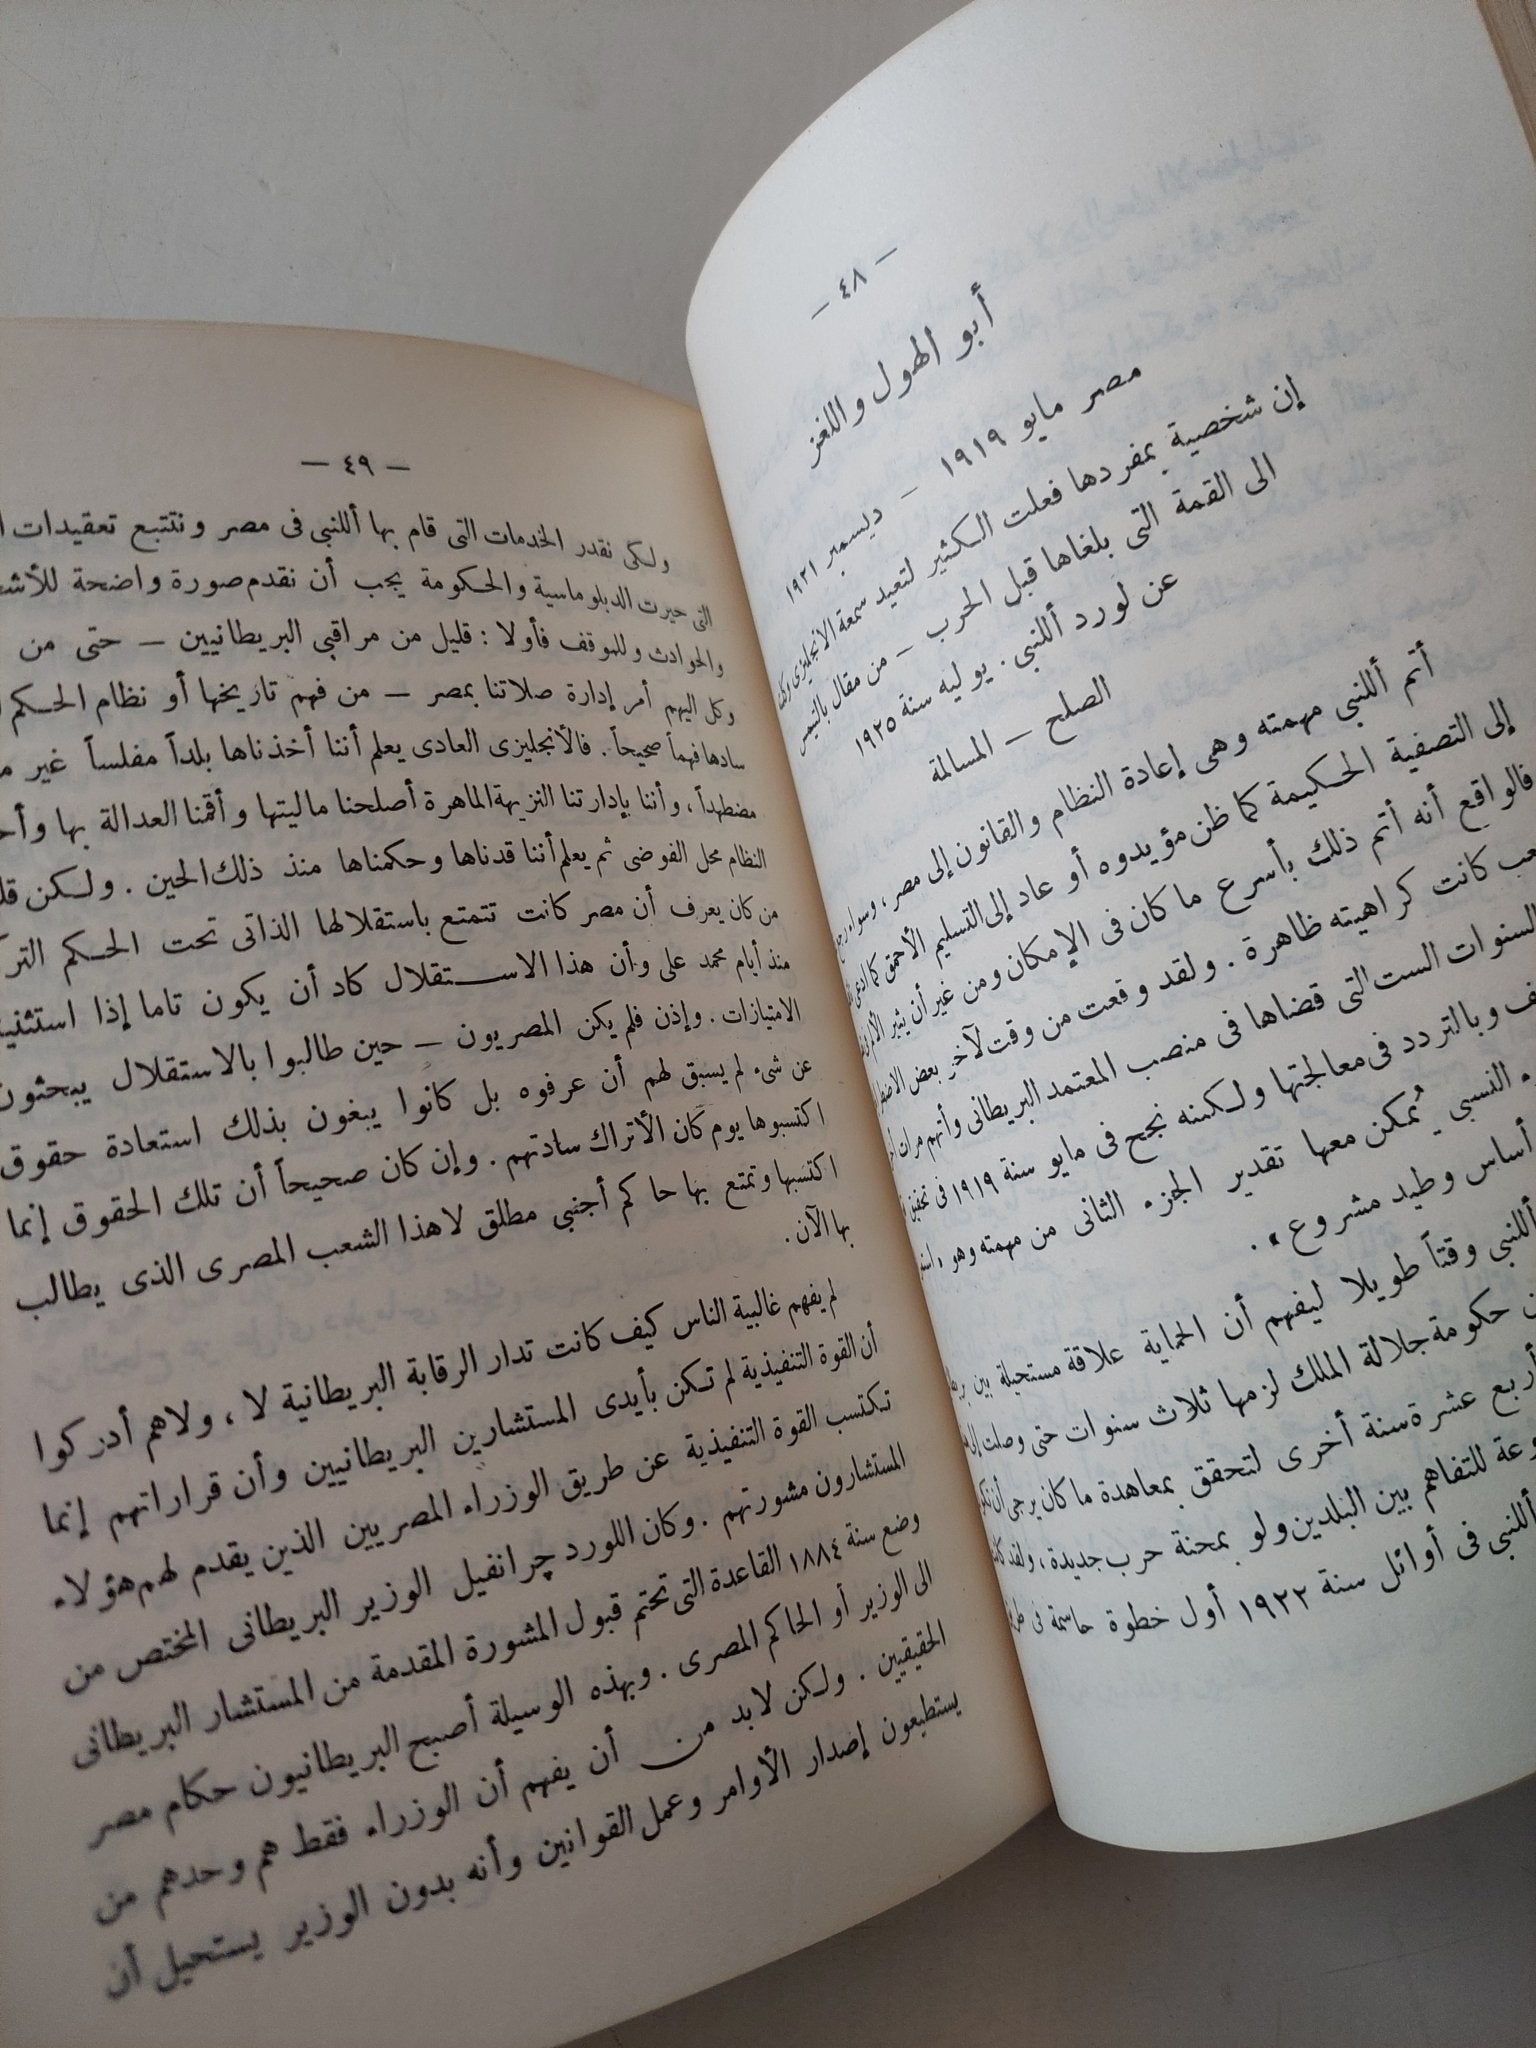 — ٤٨ —
أبو الهول واللغز
مصر مايو ١٩١٩ — ديسمبر ١٩٢١
إن شخصية بمفردها فعلت الكثير لتعيد سمعة الانجليزى
الى القمة التى بلغاها قبل الحرب — من مقال بالتيمس
عن لورد أللنبى . يوليه سنة ١٩٢٥
الصلح — المسالمة
أتم أللنبي مهمته وهى إعادة النظام والقانون إلى مصر ، وسواء رجع
إلى التصفية الحكيمة كما ظن مؤيدوه أو عاد إلى التسليم الأحمق كما ادعى
فالواقع أنه أتم ذلك بأسرع ما كان فى الإمكان ومن غير أن يثير
كانت كراهيته ظاهرة . ولقد وقعت من وقت لآخر بعض
السنوات الست التى قضاها فى منصب المعتمد البريطانى وأتهم مرات
وبالتردد فى معالجتها ولكنه نجح فى مايو سنة ١٩١٩ فى تحقيق
النسبي يُمكن معها تقدير الجزء الثانى من مهمته وهو
أساس وطيد مشروع » .
أللنبي وقتاً طويلا ليفهم أن الحماية علاقة مستحيلة بين
حكومة جلالة الملك لزمها ثلاث سنوات حتى وصلت
أربع عشرة سنة أخرى لتحقق بمعاهدة ما كان يرجى أن
للتفاهم بين البلدين ولو بمحنة حرب جديدة ، ولقد
أللنبي فى أوائل سنة ١٩٢٢ أول خطوة حاسمة فى
— ٤٩ —
ولكى نقدر الخدمات التى قام بها أللنبى فى مصر ونتتبع تعقيدات
التى حيرت الدبلوماسية والحكومة يجب أن نقدم صورة واضحة
والحوادث وللموقف فأولا : قليل من مراقبي البريطانيين — حتى من
وكل اليهم أمر إدارة صلاتنا بمصر — من فهم تاريخها أو نظام الحكم
سادها فهماً صحيحاً . فالأنجليزى العادى يعلم أننا أخذناها بلداً مفلساً غير
مضطهداً ، وأننا بإدارتنا النزيهة الماهرة أصلحنا ماليتها وأقمنا العدالة بها
النظام محل الفوضى ثم يعلم أننا قدناها وحكمناها منذ ذلك الحين . ولكن
من كان يعرف أن مصر كانت تتمتع باستقلالها الذاتى تحت الحكم
منذ أيام محمد على وأن هذا الاستقلال كاد أن يكون تاما إذا
الامتيازات . وإذن فلم يكن المصريون — حين طالبوا بالاستقلال يبحثون
عن شىء لم يسبق لهم أن عرفوه بل كانوا يبغون بذلك استعادة حقوق
اكتسبوها يوم كان الأتراك سادتهم . وإن كان صحيحاً أن تلك الحقوق إنما
اكتسبها وتمتع بها حاكم أجنبى مطلق لا هذا الشعب المصرى الذى يطالب
بها الآن .
لم يفهم غالبية الناس كيف كانت تدار الرقابة البريطانية لا ، ولا هم أدركوا
أن القوة التنفيذية لم تكن بأيدى المستشارين البريطانيين وأن قراراتهم إنما
تكتسب القوة التنفيذية عن طريق الوزراء المصريين الذين يقدم لهم هؤلاء
المستشارون مشورتهم . وكان اللورد چرانفيل الوزير البريطانى المختص من
وضع سنة ١٨٨٤ القاعدة التى تحتم قبول المشورة المقدمة من المستشار البريطانى
الى الوزير أو الحاكم المصرى . وبهذه الوسيلة أصبح البريطانيون حكام مصر
الحقيقيين . ولكن لابد من أن يفهم أن الوزراء فقط هم وحدهم من
يستطيعون إصدار الأوامر وعمل القوانين وأنه بدون الوزير يستحيل أن